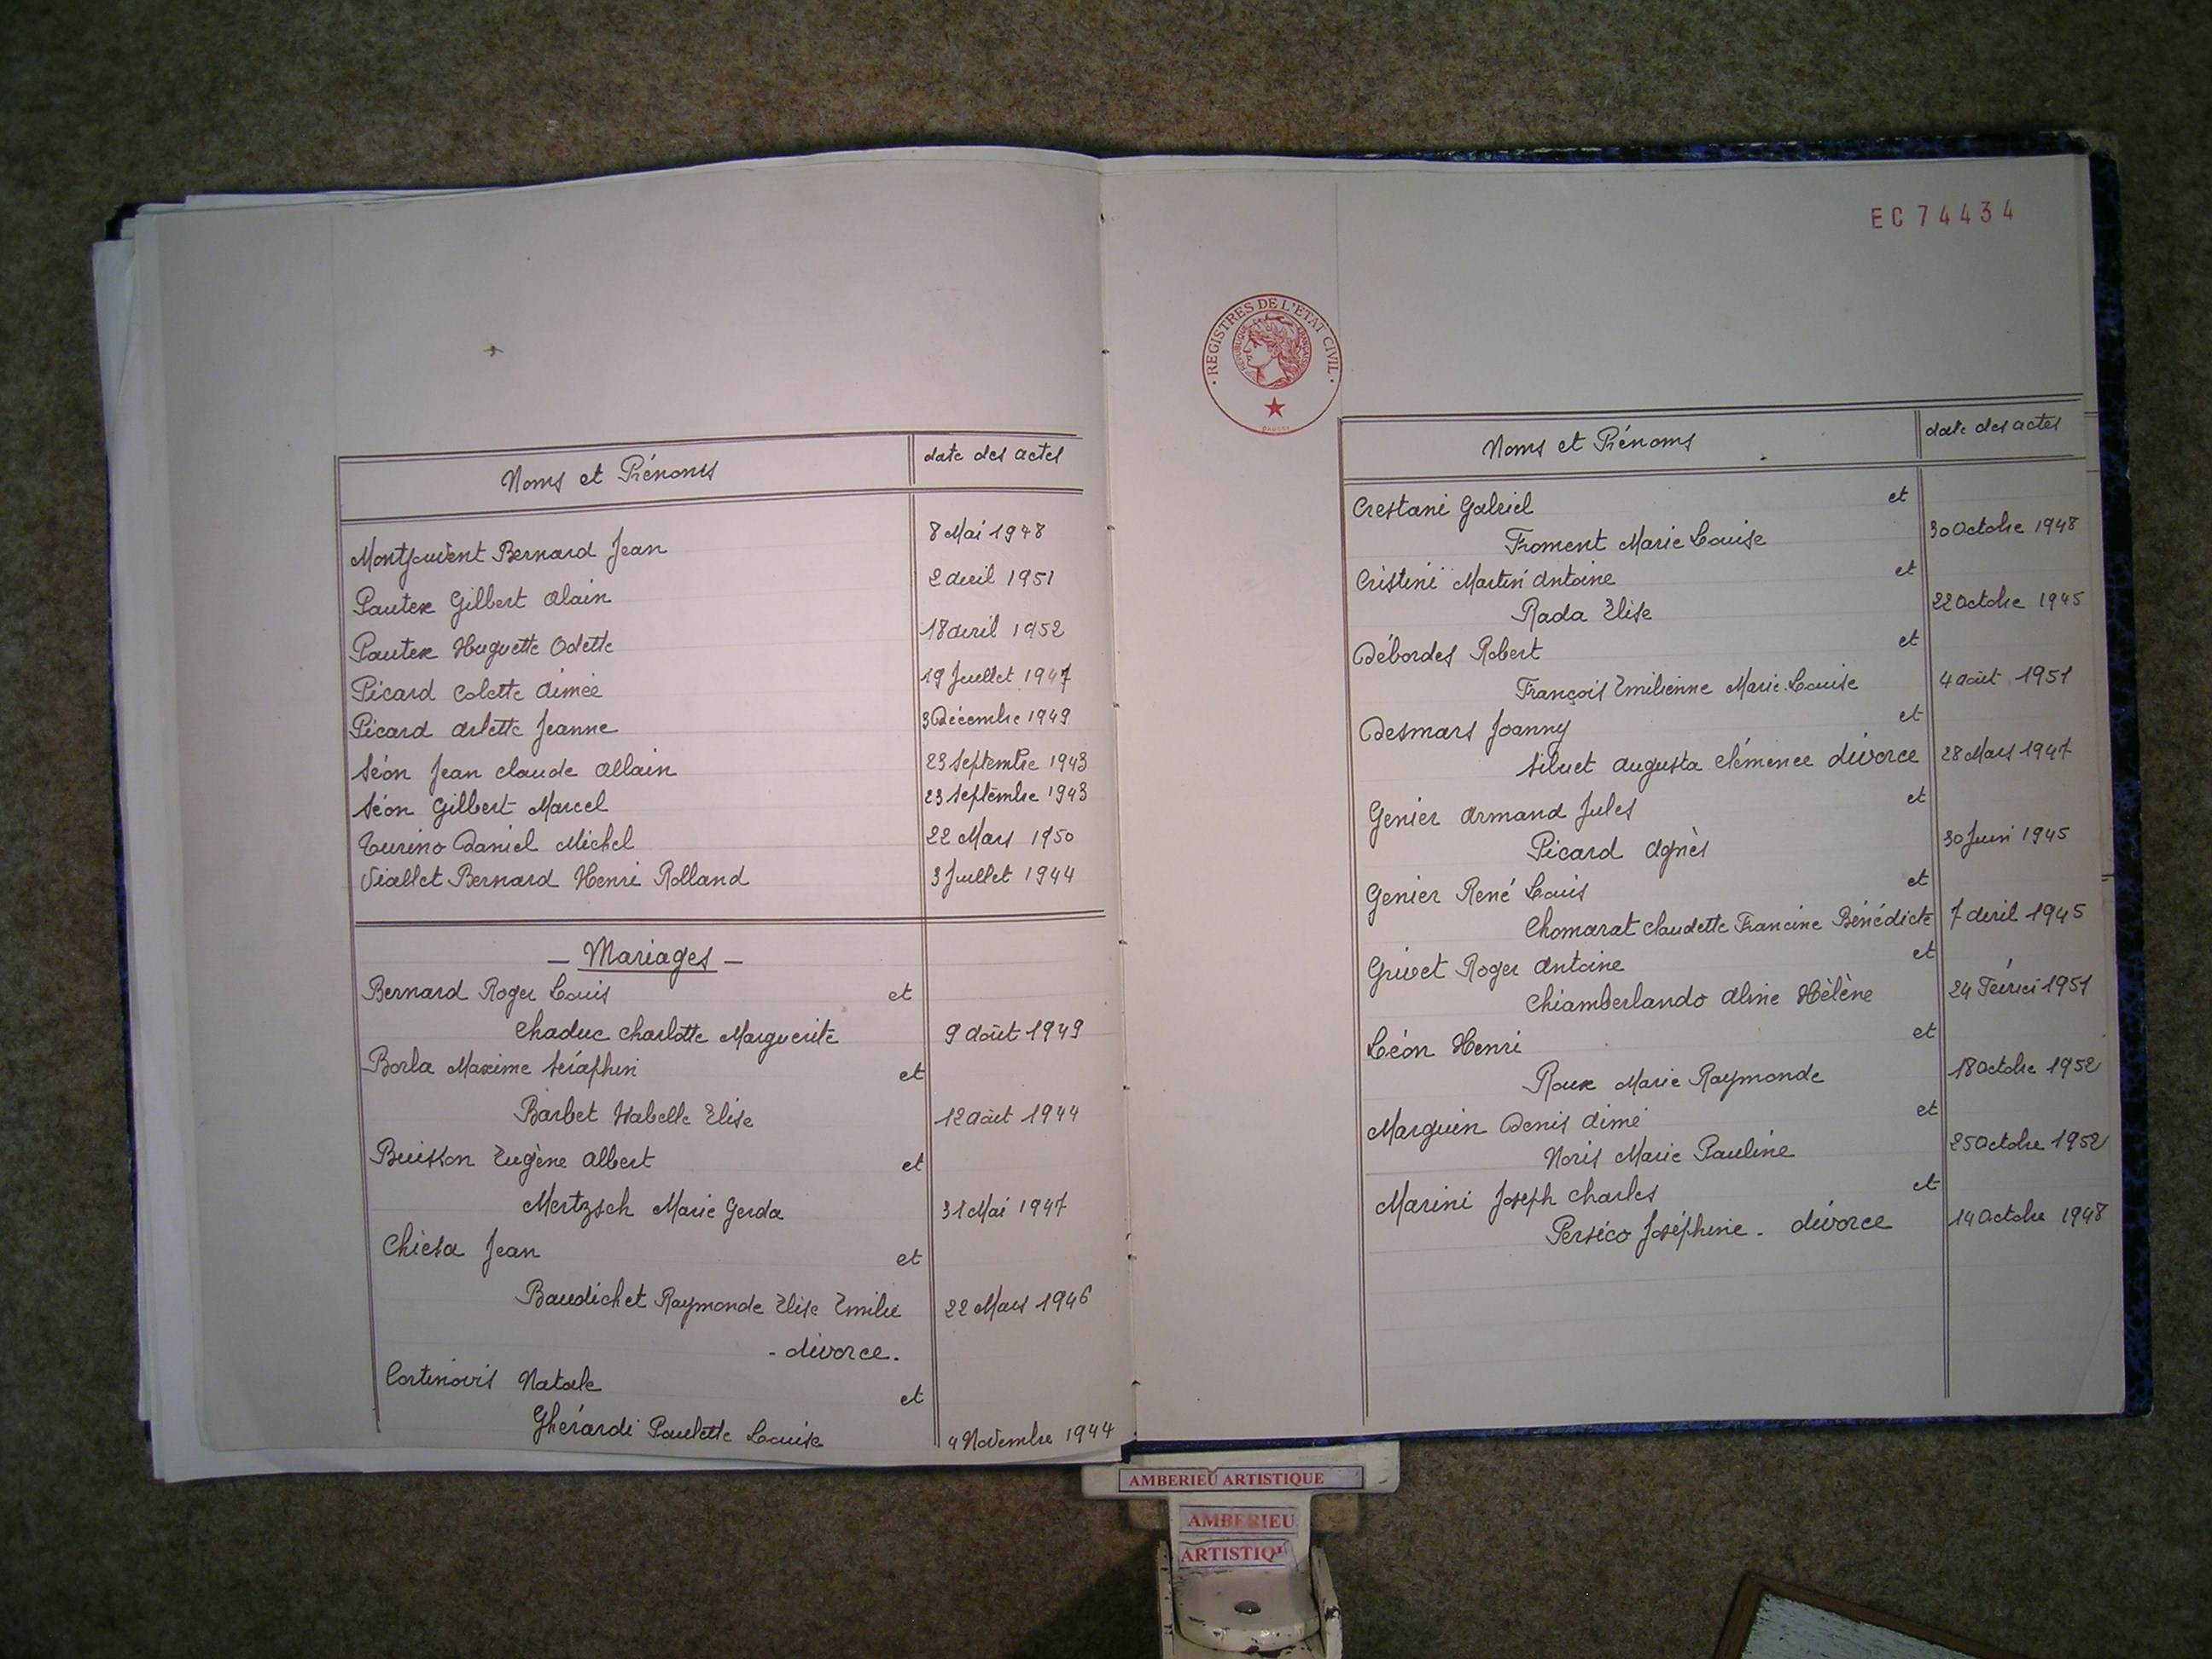 Noms et Prénoms date des actes
Montjouvent Bernard Jean 8 Mai 1948
Pautex Gilbert Alain 2 avril 1951
Pautex Huguette Odette 18 avril 1952
Picard Colette Aimée 19 Juillet 1947
Picard Arlette Jeanne 3 Décembre 1949
Séon Jean Claude Allain 23 Septembre 1943
Séon Gilbert Marcel 23 Septembre 1943
Turino Daniel Michel 22 Mars 1950
Viallet Bernard Henri Rolland 3 Juillet 1944
- Mariages -
Bernard Roger Louis et
Chaduc Charlotte Marguerite 9 août 1949
Borla Maxime Séraphin et
Barbet Isabelle Elise 12 août 1944
Buisson Eugène Albert et
Mertzsch Marie Gerda 31 Mai 1947
Chiesa Jean et
Baudichet Raymonde Elise Emilie 22 Mars 1946
- divorce.
Cortinovis Natale et
Ghérardi Paulette Louise 4 Novembre 1944
EC74434
• REGISTRES DE L'ETAT CIVIL •
REPUBLIQUE FRANÇAISE
Noms et Prénoms date des actes
Crestani Gabriel et
Froment Marie Louise 30 Octobre 1948
Cristini Martin Antoine et
Rada Elise 22 Octobre 1945
Débordes Robert et
François Emilienne Marie-Louise 4 août 1951
Desmars Joanny et
Siluet Augusta Clémence divorce 28 Mars 1947
Genier Armand Jules et
Picard Agnès 30 Juin 1945
Genier René Louis et
Chomarat Claudette Francine Bénédicte 7 avril 1945
Grivet Roger Antoine et
Chiamberlando Aline Hélène 24 Février 1951
Léon Henri et
Roux Marie Raymonde 18 Octobre 1952
Marguin Denis Aimé et
Noris Marie Pauline 25 Octobre 1952
Marini Joseph Charles et
Persico Joséphine - divorce 14 Octobre 1948
AMBERIEU ARTISTIQUE
AMBERIEU
ARTISTIQ